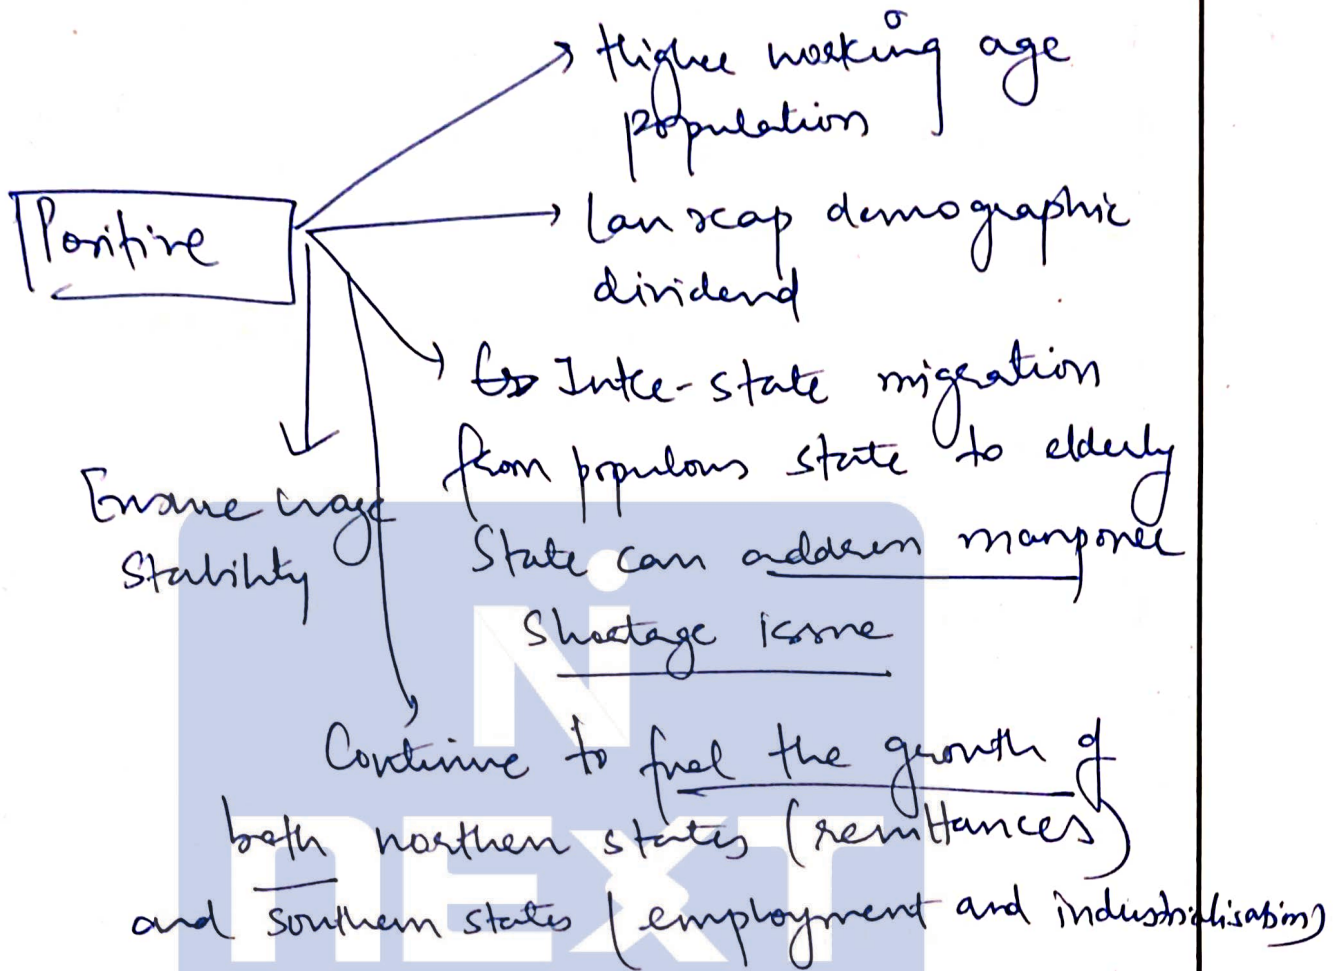 Positive
Higher working age
population
Can reap demographic
dividend
Inter-state migration
from populous state to elderly
State can address manpower
Shortage issue
Ensure wage
Stability
Continue to fuel the growth of
both northern states (remittances)
and southern states (employment and industrialisation)
Ni
NEXT